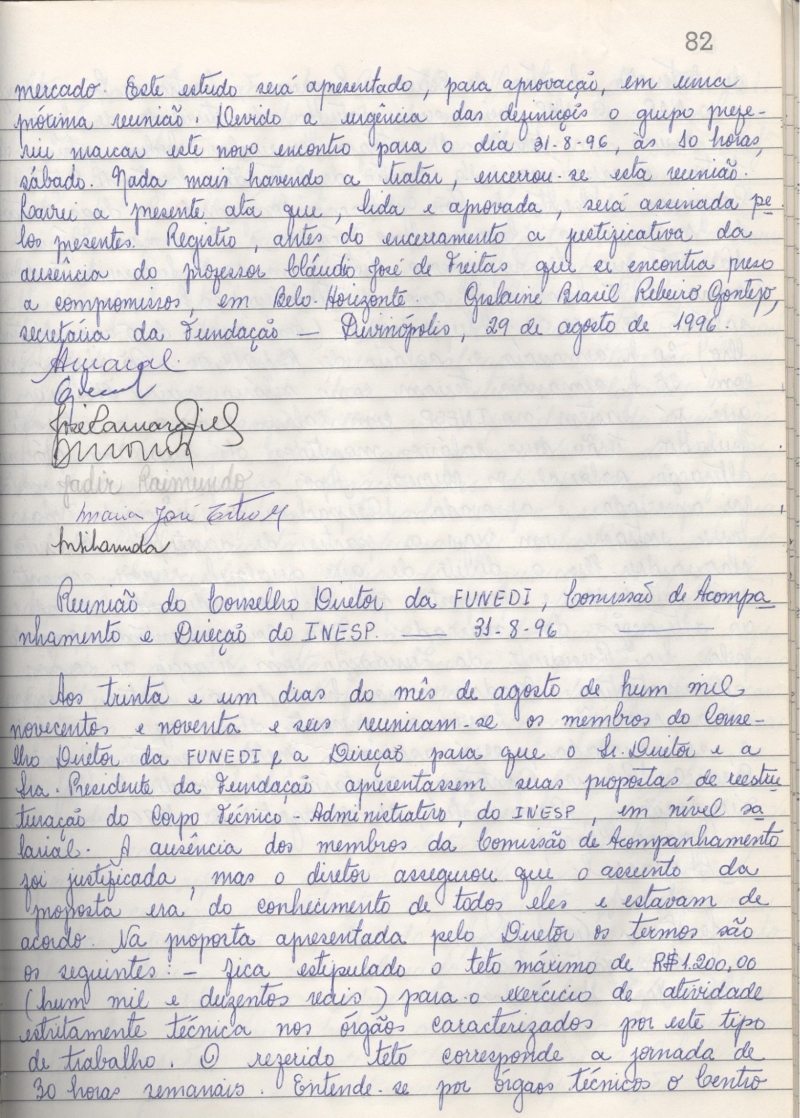 82
mercado. Este estudo será apresentado, para aprovação, em uma
próxima reunião. Devido a urgência das definições o grupo prefe-
riu marcar este novo encontro para o dia 31-8-96, às 10 horas,
sábado. Nada mais havendo a tratar, encerrou-se esta reunião.
Lavrei a presente ata que, lida e aprovada, será assinada pe-
los presentes. Registro, antes do encerramento a justificativa da
ausência do professor Cláudio José de Freitas que se encontra preso
a compromissos, em Belo-Horizonte. Gislaine Brasil Ribeiro Gontijo,
secretária da Fundação — Divinópolis, 29 de agosto de 1996.
Amaral.
José
Jadir Raimundo
Maria José
Reunião do Conselho Diretor da FUNEDI, Comissão de Acompa-
nhamento e Direção do INESP. —— 31-8-96 ——
Aos trinta e um dias do mês de agosto de hum mil
novecentos e noventa e seis reuniram-se os membros do Conse-
lho Diretor da FUNEDI e a Direção para que o Sr. Diretor e a
Sra. Presidente da Fundação apresentassem suas propostas de reestru-
turação do Corpo Técnico-Administrativo, do INESP, em nível sa-
larial. A ausência dos membros da Comissão de Acompanhamento
foi justificada, mas o diretor assegurou que o assunto da
proposta era do conhecimento de todos eles e estavam de
acordo. Na proposta apresentada pelo Diretor os termos são
os seguintes: - fica estipulado o teto máximo de R$1.200,00
(hum mil e duzentos reais) para o exercício de atividade
estritamente técnica nos órgãos caracterizados por este tipo
de trabalho. O referido teto corresponde a jornada de
30 horas semanais. Entende-se por órgãos técnicos o Centro